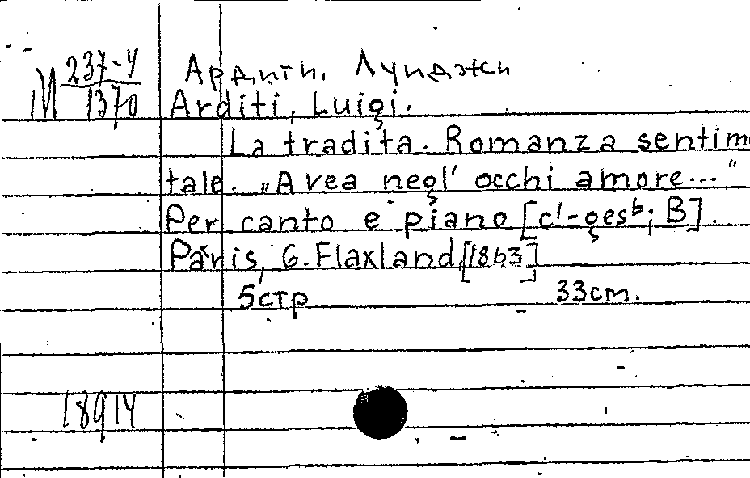 М 237-4
1370
Ардити, Луиджи
Arditi, Luigi.
La tradita. Romanza sentimen
tale. „Avea negl' occhi amore..."
Per canto e piano [c'-ges♭; B].
Paris, G. Flaxland, [1863]
5стр 33cm.
18914